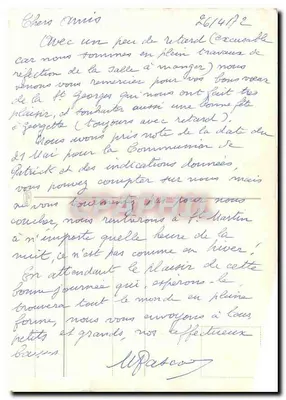 Chers amis 26/4/72
Avec un peu de retard (excusable
car nous sommes en plein travaux de
réfection de la salle à manger) nous
venons vous remercier pour vos bons vœux
de la St Georges qui nous ont fait très
plaisir, et souhaiter aussi une bonne fête
à Georgette (toujours avec retard).
Nous avons pris note de la date du
21 Mai pour la Communion de
Patrick et des indications données,
vous pouvez compter sur nous, mais
ne vous pour nous
coucher, nous rentrerons à St Martin
à n'importe quelle heure de la
nuit, ce n'est pas comme en hiver!
En attendant le plaisir de cette
bonne journée qui, espérons-le,
trouvera tout le monde en pleine
forme, nous vous envoyons à tous
petits et grands, nos affectueux
baisers